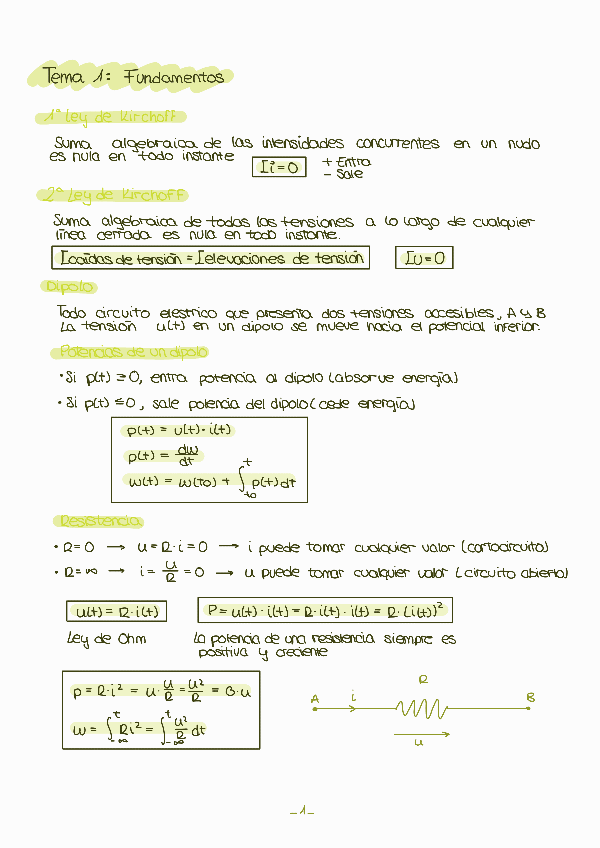 Tema 1: Fundamentos
1ª Ley de Kirchoff
Suma algebraica de las intensidades concurrentes en un nudo
es nula en todo instante
Σi=0
+ Entra
- Sale
2ª Ley de Kirchoff
Suma algebraica de todas las tensiones a lo largo de cualquier
línea cerrada es nula en todo instante.
Σcaídas de tensión = Σelevaciones de tensión
Σu=0
Dipolo
Todo circuito electrico que presenta dos tensiones accesibles, A y B
La tensión u(t) en un dipolo se mueve hacia el potencial inferior.
Potencias de un dipolo
• Si p(t) ≥ 0, entra potencia al dipolo (absorve energía)
• Si p(t) ≤ 0, sale potencia del dipolo (cede energía)
p(t) = u(t)·i(t)
p(t) = dw/dt
w(t) = w(to) + ∫_to^t p(t)dt
Resistencia
• R=0 → u=R·i=0 → i puede tomar cualquier valor (cortocircuito)
• R=∞ → i = u/R = 0 → u puede tomar cualquier valor (circuito abierto)
u(t) = R·i(t)
P = u(t)·i(t) = R·i(t)·i(t) = R·(i(t))²
Ley de Ohm
La potencia de una resistencia siempre es
positiva y creciente
p = R·i² = u·u/R = u²/R = G·u
w = ∫_-∞^t Ri² = ∫_-∞^t u²/R dt
R
A i B
u
-1-